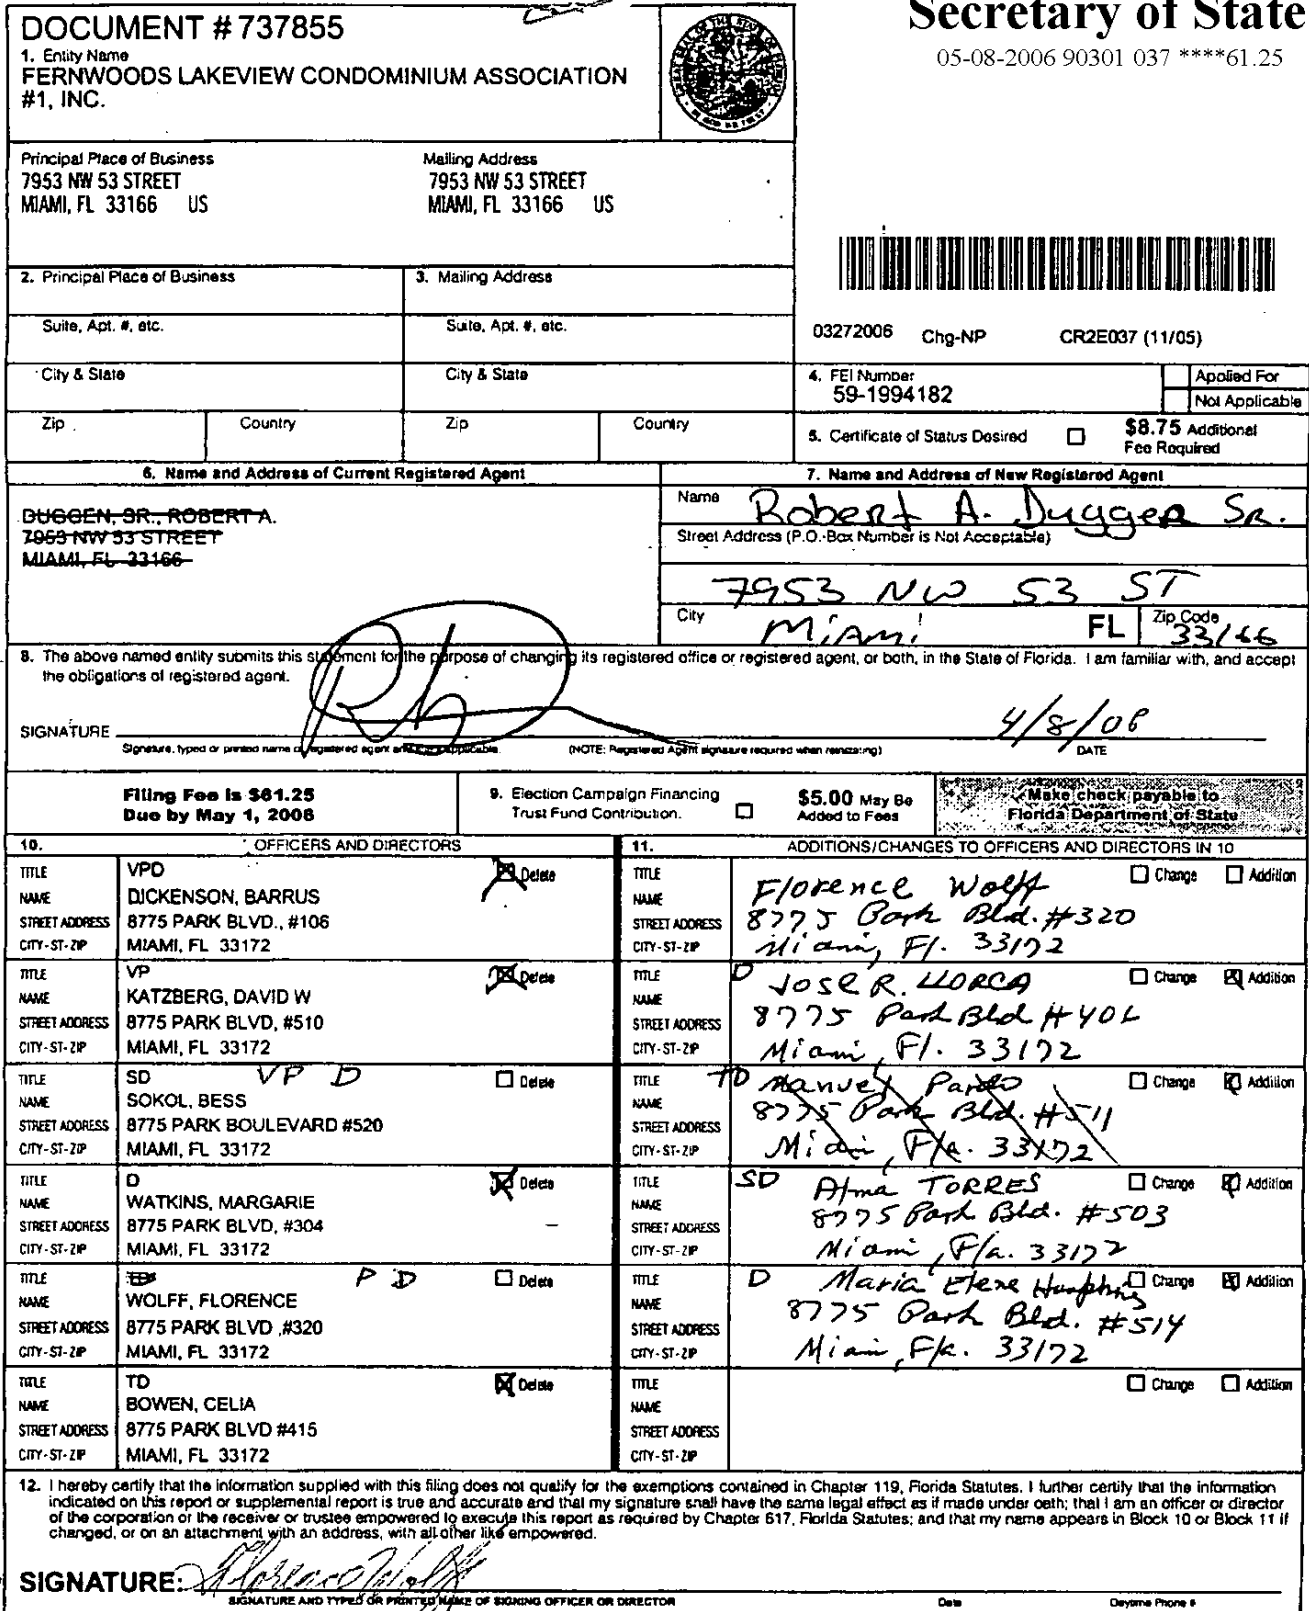 Secretary of State
05-08-2006 90301 037 ****61.25
DOCUMENT # 737855
1. Entity Name
FERNWOODS LAKEVIEW CONDOMINIUM ASSOCIATION
#1, INC.
Principal Place of Business
7953 NW 53 STREET
MIAMI, FL 33166 US
Mailing Address
7953 NW 53 STREET
MIAMI, FL 33166 US
2. Principal Place of Business
3. Mailing Address
Suite, Apt. #, etc.
Suite, Apt. #, etc.
03272006 Chg-NP CR2E037 (11/05)
City & State
City & State
4. FEI Number
59-1994182
Applied For
Not Applicable
Zip
Country
Zip
Country
5. Certificate of Status Desired
$8.75 Additional
Fee Required
6. Name and Address of Current Registered Agent
DUGGEN, SR., ROBERT A.
7953 NW 53 STREET
MIAMI, FL 33166
7. Name and Address of New Registered Agent
Name Robert A. Dugger Sr.
Street Address (P.O. Box Number is Not Acceptable)
7953 NW 53 ST
City Miami FL Zip Code 33166
8. The above named entity submits this statement for the purpose of changing its registered office or registered agent, or both, in the State of Florida. I am familiar with, and accept
the obligations of registered agent.
SIGNATURE
4/8/06
Signature, typed or printed name of registered agent and title if applicable.
(NOTE: Registered Agent signature required when reinstating)
DATE
Filing Fee is $61.25
Due by May 1, 2006
9. Election Campaign Financing
Trust Fund Contribution.
$5.00 May Be
Added to Fees
Make check payable to
Florida Department of State
10. OFFICERS AND DIRECTORS
11. ADDITIONS/CHANGES TO OFFICERS AND DIRECTORS IN 10
TITLE VPD Delete
NAME DICKENSON, BARRUS
STREET ADDRESS 8775 PARK BLVD., #106
CITY-ST-ZIP MIAMI, FL 33172
TITLE Change Addition
NAME Florence Wolff
STREET ADDRESS 8775 Park Bld. #320
CITY-ST-ZIP Miami, Fl. 33172
TITLE VP Delete
NAME KATZBERG, DAVID W
STREET ADDRESS 8775 PARK BLVD, #510
CITY-ST-ZIP MIAMI, FL 33172
TITLE D Change Addition
NAME Jose R. LLORCA
STREET ADDRESS 8775 Park Bld #402
CITY-ST-ZIP Miami, Fl. 33172
TITLE SD VP D Delete
NAME SOKOL, BESS
STREET ADDRESS 8775 PARK BOULEVARD #520
CITY-ST-ZIP MIAMI, FL 33172
TITLE TD Change Addition
NAME Manuel Pardo
STREET ADDRESS 8775 Park Bld. #511
CITY-ST-ZIP Miami, Fla. 33172
TITLE D Delete
NAME WATKINS, MARGARIE
STREET ADDRESS 8775 PARK BLVD, #304
CITY-ST-ZIP MIAMI, FL 33172
TITLE SD Change Addition
NAME Alma TORRES
STREET ADDRESS 8775 Park Bld. #503
CITY-ST-ZIP Miami, Fla. 33172
TITLE P D Delete
NAME WOLFF, FLORENCE
STREET ADDRESS 8775 PARK BLVD ,#320
CITY-ST-ZIP MIAMI, FL 33172
TITLE D Change Addition
NAME Maria Elene
STREET ADDRESS 8775 Park Bld. #514
CITY-ST-ZIP Miami, Fla. 33172
TITLE TD Delete
NAME BOWEN, CELIA
STREET ADDRESS 8775 PARK BLVD #415
CITY-ST-ZIP MIAMI, FL 33172
TITLE Change Addition
NAME
STREET ADDRESS
CITY-ST-ZIP
12. I hereby certify that the information supplied with this filing does not qualify for the exemptions contained in Chapter 119, Florida Statutes. I further certify that the information
indicated on this report or supplemental report is true and accurate and that my signature shall have the same legal effect as if made under oath; that I am an officer or director
of the corporation or the receiver or trustee empowered to execute this report as required by Chapter 617, Florida Statutes; and that my name appears in Block 10 or Block 11 if
changed, or on an attachment with an address, with all other like empowered.
SIGNATURE: Florence Wolff
SIGNATURE AND TYPED OR PRINTED NAME OF SIGNING OFFICER OR DIRECTOR
Date
Daytime Phone #